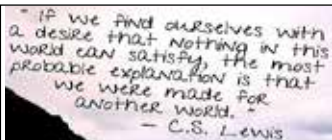 "If we find ourselves with
a desire that nothing in this
world can satisfy, the most
probable explanation is that
we were made for
another world."
– C.S. Lewis